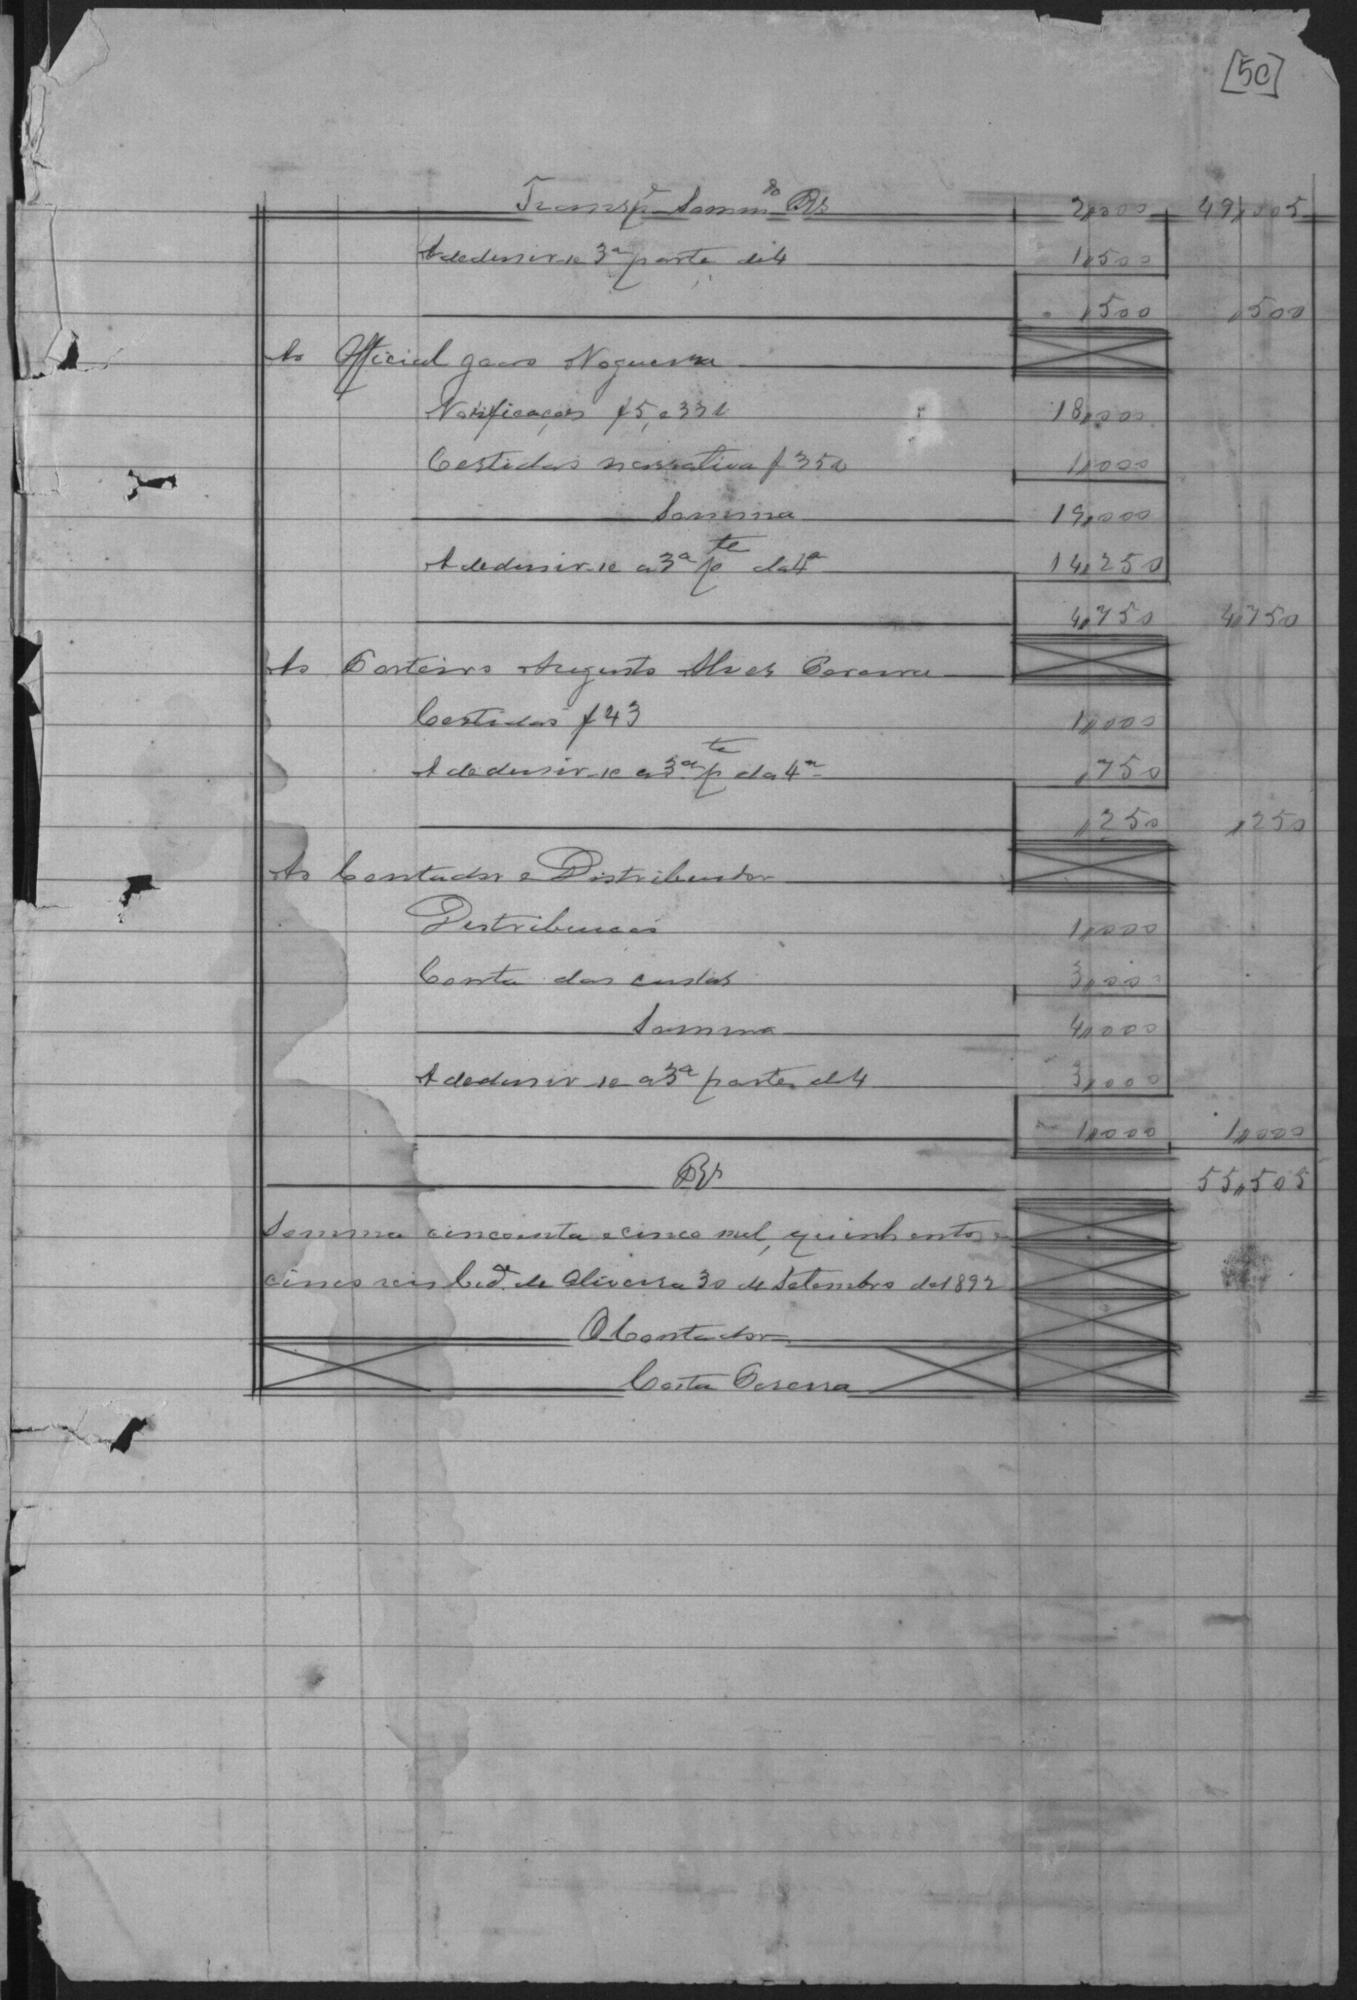 [50]
Transp.e Somm.as Rs 2,000 49,005
A dedusir-se 3ª parte de 4 1,500
,500 ,500
Ao Official Nogueira
Notificações f 5, e 33
18,000
Certidão narrativa f 35 1,000
Somma 19,000
A dedusir-se a 3ª pte da 4ª 14,250
4,750 4,750
Ao Porteiro Augusto Alves Pereira
Certidão f 43 1,000
A dedusir-se a 3ª pte da 4ª ,750
,250 ,250
Ao Contador e Distribuidor
Distribuição 1,000
Conta das custas 3,000
Somma 4,000
A dedusir-se a 3ª parte de 4 3,000
1,000 1,000
Rs 55,505
Somma cincoenta e cinco mil, quinhentos e
cinco reis Cid.e de Oliveira 30 de Setembro de 1892
O Contador
Costa Pereira